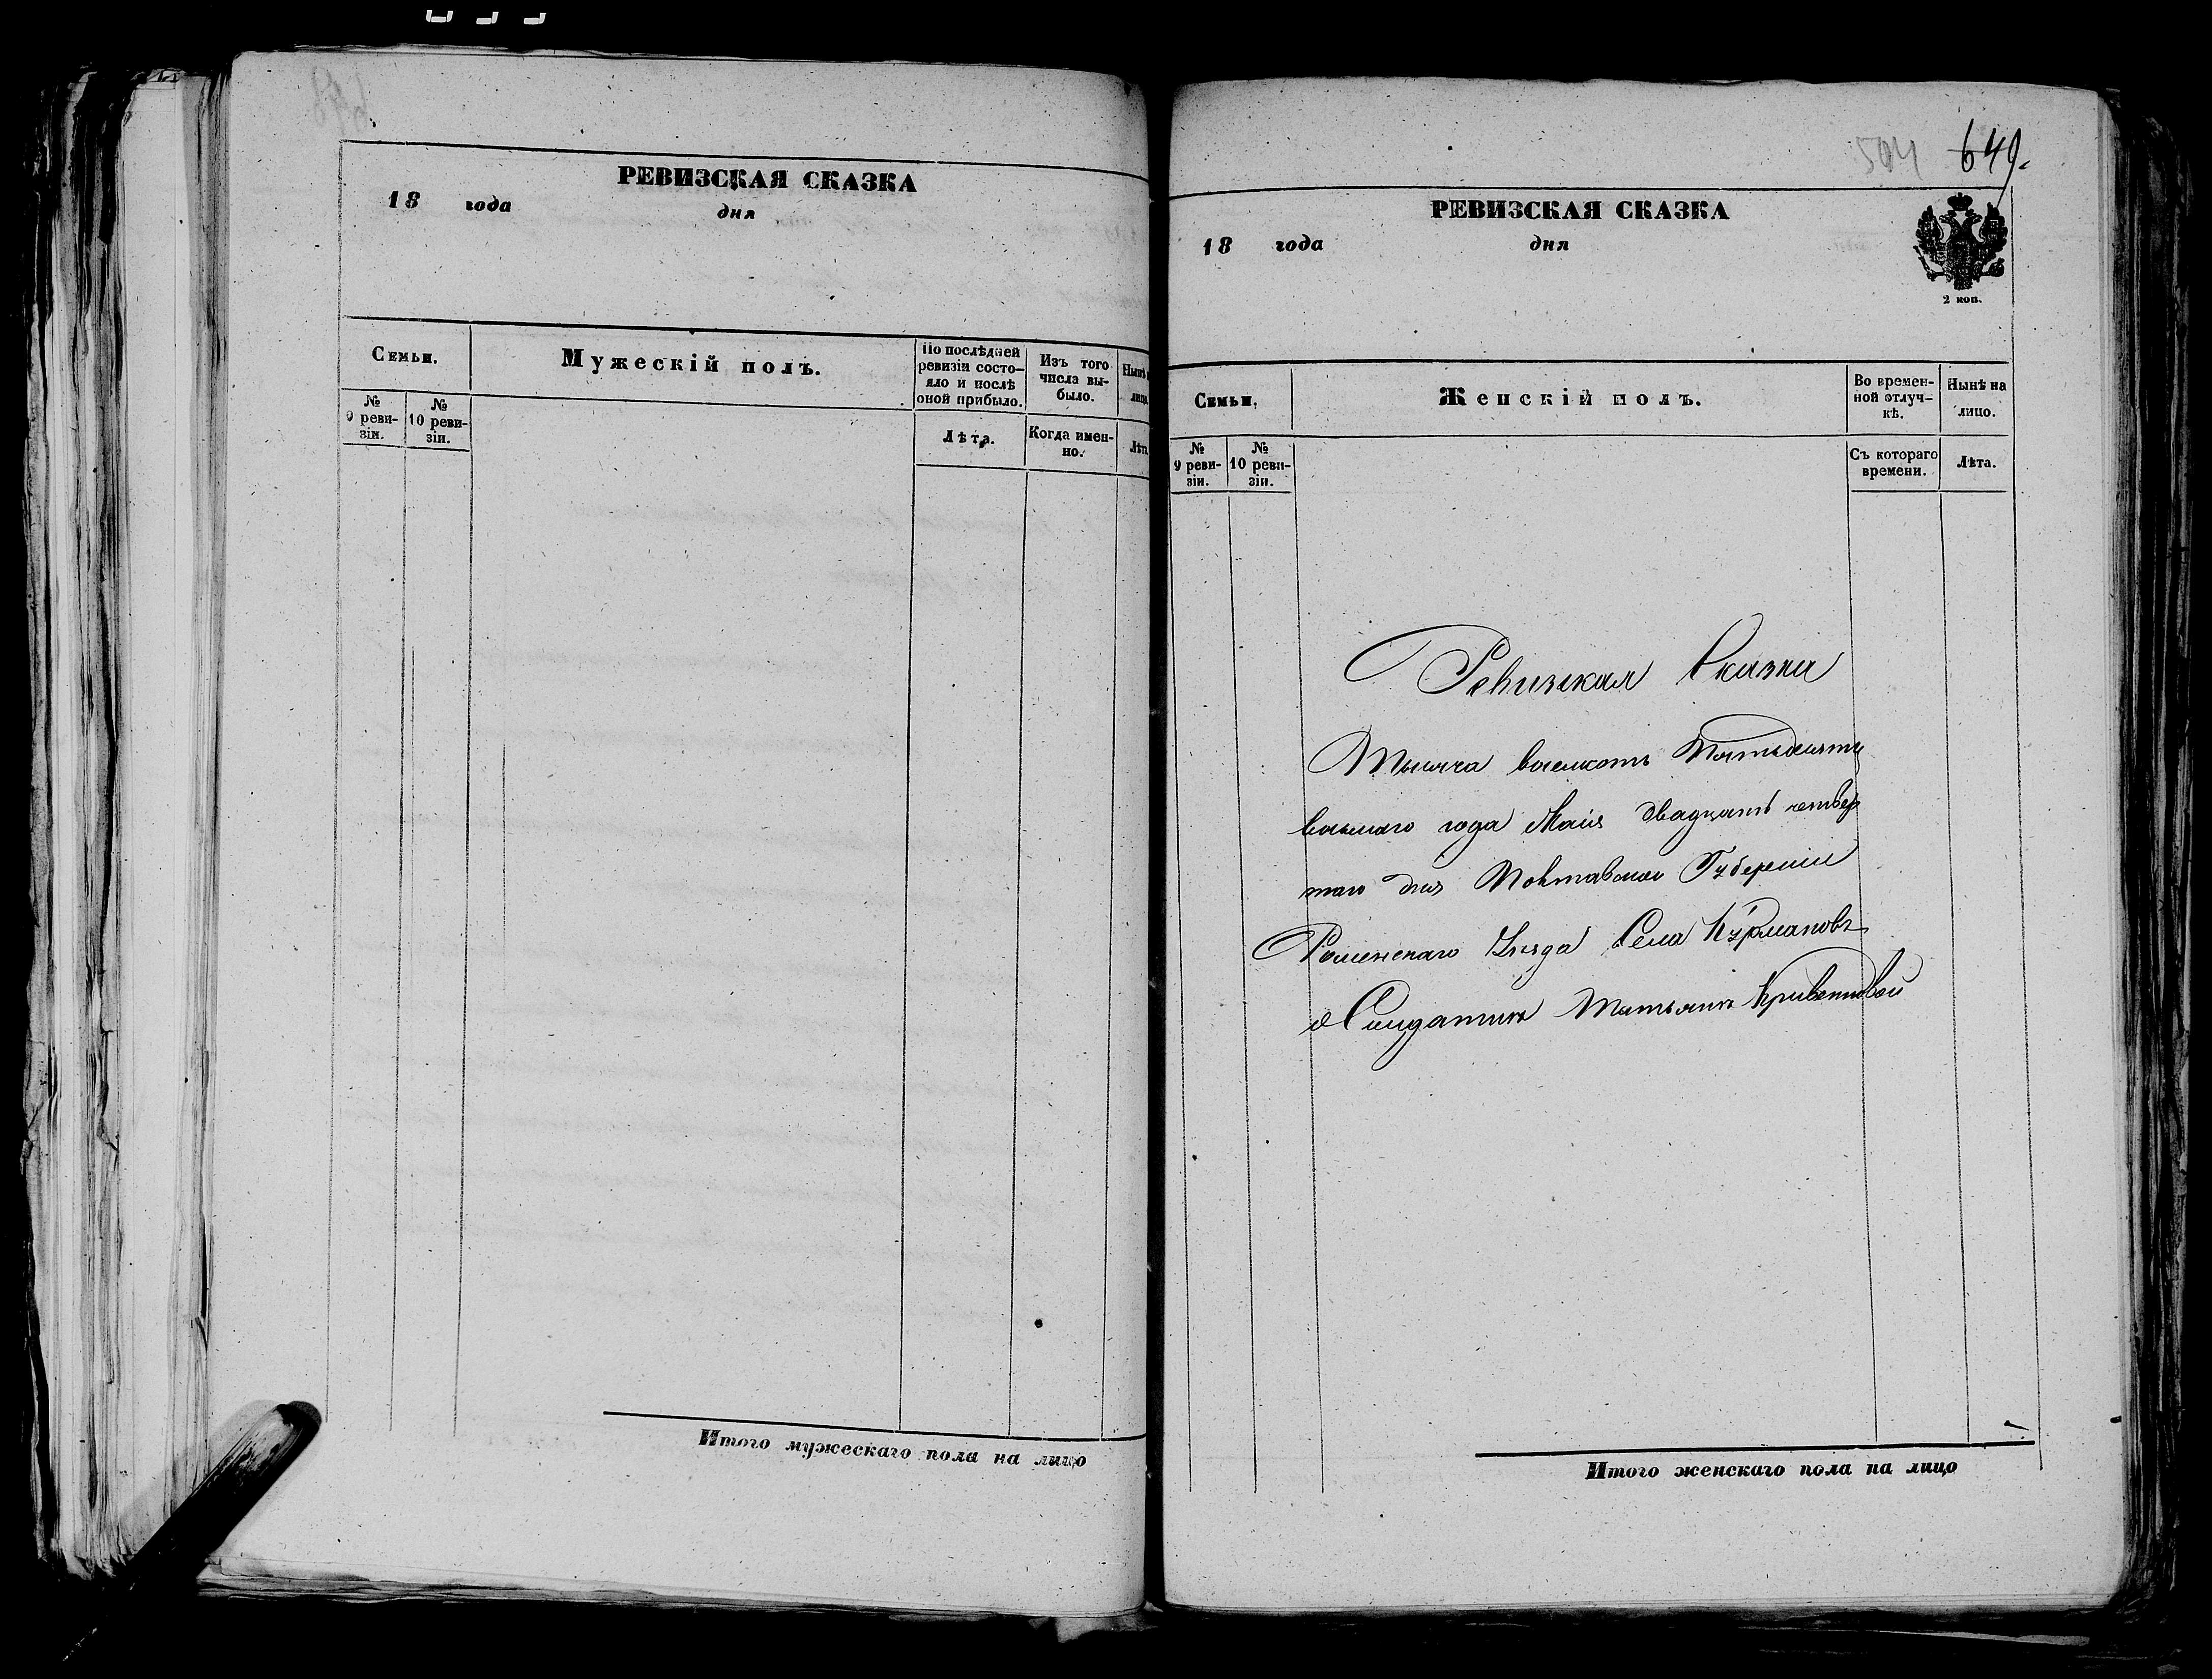 РЕВИЗСКАЯ СКАЗКА
18 года дня
Семьи.
Мужескій полъ.
По послѣдней ревизіи состо-
яло и послѣ
оной прибыло.
Изъ того
числа вы-
было.
№
9 реви-
зіи.
№
10 реви-
зіи.
Лѣта.
Когда имен-
но.
Итого мужескаго пола на лицо
504 649.
РЕВИЗСКАЯ СКАЗКА
18 года дня
2 коп.
Семьи.
Женскій полъ.
Во времен-
ной отлуч-
кѣ.
Нынѣ на
лицо.
№
9 реви-
зіи.
№
10 реви-
зіи.
Съ котораго
времени.
Лѣта.
Ревизская Сказка
Тысяча восемсотъ Пятьдесятъ
восьмаго года Маія двадцать четвер
таго дня Полтавской Губерніи
Роменскаго Уѣзда Села Курмановъ
О Солдаткѣ Татьянѣ
Итого женскаго пола на лицо